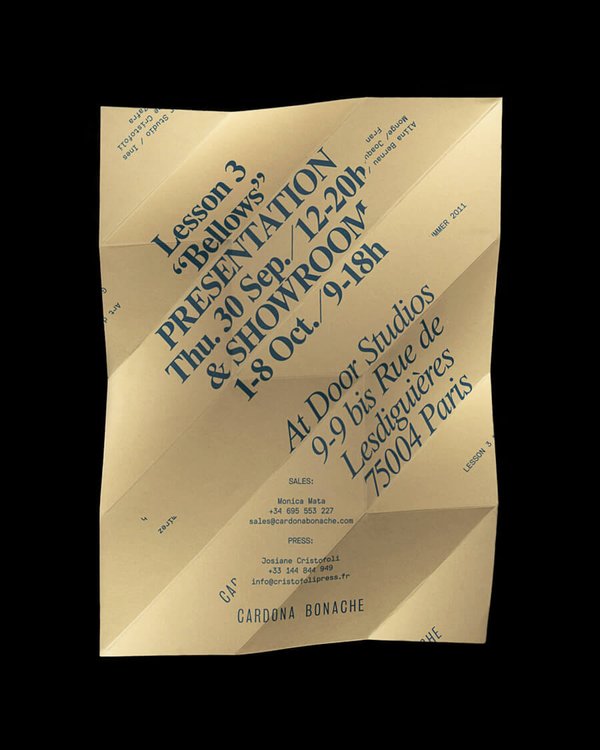 Lesson 3
“Bellows”
PRESENTATION
Thu. 30 Sep./12-20h
& SHOWROOM
1-8 Oct./9-18h
At Door Studios
9-9 bis Rue de
Lesdiguières
75004 Paris
Studio / Ines
Cristofoli
Alina Bernau
Monge/
Fran
MMER 2011
LESSON 3
SALES:
Monica Mata
+34 695 553 227
sales@cardonabonache.com
PRESS:
Josiane Cristofoli
+33 144 844 949
info@cristofolipress.fr
CAR
CARDONA BONACHE
CHE